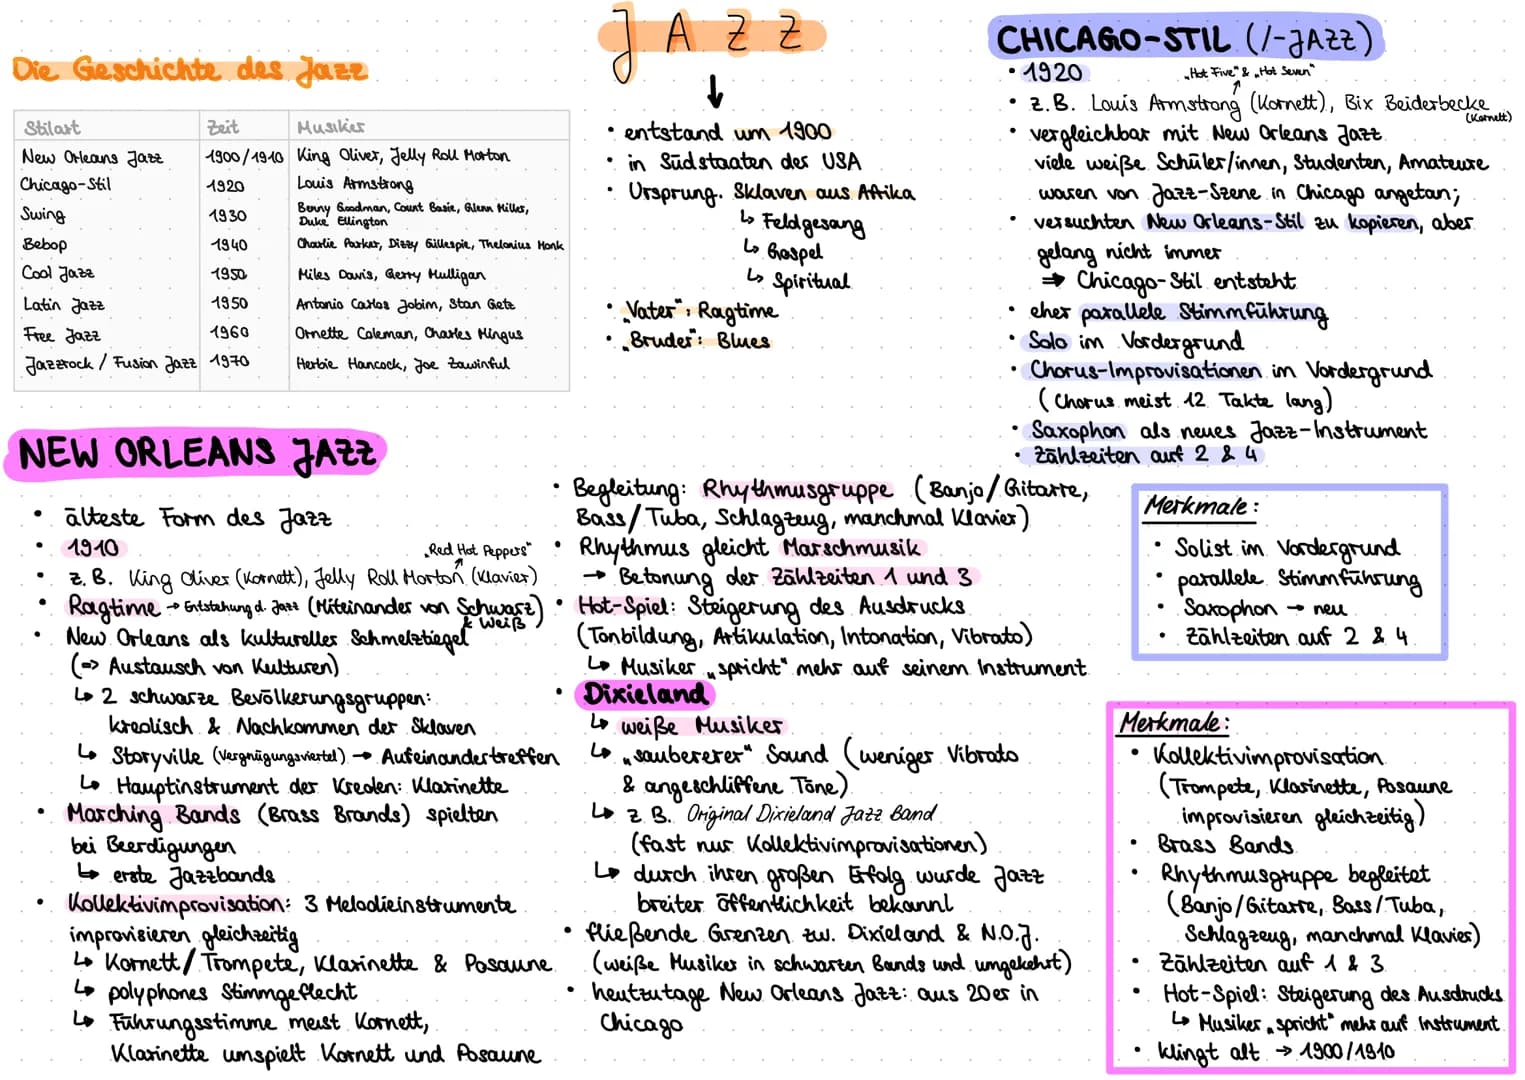 Die Geschichte des Jazz
Stilart Zeit Musiker
New Orleans Jazz 1900/1910 King Oliver, Jelly Roll Morton
Chicago-Stil 1920 Louis Armstrong
Swing 1930 Benny Goodman, Count Basie, Glenn Miller, Duke Ellington
Bebop 1940 Charlie Parker, Dizzy Gillespie, Thelonius Monk
Cool Jazz 1950 Miles Davis, Gerry Mulligan
Latin Jazz 1950 Antonio Carlos Jobim, Stan Getz
Free Jazz 1960 Ornette Coleman, Charles Mingus
Jazzrock / Fusion Jazz 1970 Herbie Hancock, Joe Zawinful
JAZZ
↓
• entstand um 1900
• in Südstaaten der USA
• Ursprung: Sklaven aus Afrika
↳ Feldgesang
↳ Gospel
↳ Spiritual
• „Vater": Ragtime
• „Bruder": Blues
CHICAGO-STIL (/-JAZZ)
• 1920
„Hot Five" & „Hot Seven"
• z.B. Louis Armstrong (Kornett), Bix Beiderbecke
(Kornett)
• vergleichbar mit New Orleans Jazz
viele weiße Schüler/innen, Studenten, Amateure
waren von Jazz-Szene in Chicago angetan;
• versuchten New Orleans-Stil zu kopieren, aber
gelang nicht immer
⇒ Chicago-Stil entsteht
• eher parallele Stimmführung
• Solo im Vordergrund
• Chorus-Improvisationen im Vordergrund
(Chorus meist 12 Takte lang)
• Saxophon als neues Jazz-Instrument
• Zählzeiten auf 2 & 4
Merkmale:
• Solist im Vordergrund
• parallele Stimmführung
• Saxophon → neu
• Zählzeiten auf 2 & 4
NEW ORLEANS JAZZ
• älteste Form des Jazz
• 1910
„Red Hot Peppers"
• z.B. King Oliver (Kornett), Jelly Roll Morton (Klavier)
• Ragtime → Entstehung d. Jazz (Miteinander von Schwarz
& Weiß)
• New Orleans als kultureller Schmelztiegel
(=> Austausch von Kulturen)
↳ 2 schwarze Bevölkerungsgruppen:
kreolisch & Nachkommen der Sklaven
↳ Storyville (Vergnügungsviertel) → Aufeinandertreffen
↳ Hauptinstrument der Kreolen: Klarinette
• Marching Bands (Brass Brands) spielten
bei Beerdigungen
↳ erste Jazzbands
• Kollektivimprovisation: 3 Melodieinstrumente
improvisieren gleichzeitig
↳ Kornett/Trompete, Klarinette & Posaune
↳ polyphones Stimmgeflecht
↳ Führungsstimme meist Kornett,
Klarinette umspielt Kornett und Posaune
• Begleitung: Rhythmusgruppe (Banjo/Gitarre,
Bass/Tuba, Schlagzeug, manchmal Klavier)
• Rhythmus gleicht Marschmusik
→ Betonung der Zählzeiten 1 und 3
• Hot-Spiel: Steigerung des Ausdrucks
(Tonbildung, Artikulation, Intonation, Vibrato)
↳ Musiker „spricht" mehr auf seinem Instrument
• Dixieland
↳ weiße Musiker
↳ „saubererer" Sound (weniger Vibrato
& angeschliffene Töne)
↳ z.B. Original Dixieland Jazz Band
(fast nur Kollektivimprovisationen)
↳ durch ihren großen Erfolg wurde Jazz
breiter Öffentlichkeit bekannt
• fließende Grenzen zw. Dixieland & N.O.J.
(weiße Musiker in schwarzen Bands und umgekehrt)
• heutzutage New Orleans Jazz: aus 20er in
Chicago
Merkmale:
• Kollektivimprovisation
(Trompete, Klarinette, Posaune
improvisieren gleichzeitig)
• Brass Bands
• Rhythmusgruppe begleitet
(Banjo/Gitarre, Bass/Tuba,
Schlagzeug, manchmal Klavier)
• Zählzeiten auf 1 & 3
• Hot-Spiel: Steigerung des Ausdrucks
↳ Musiker „spricht" mehr auf Instrument
• klingt alt → 1900/1910